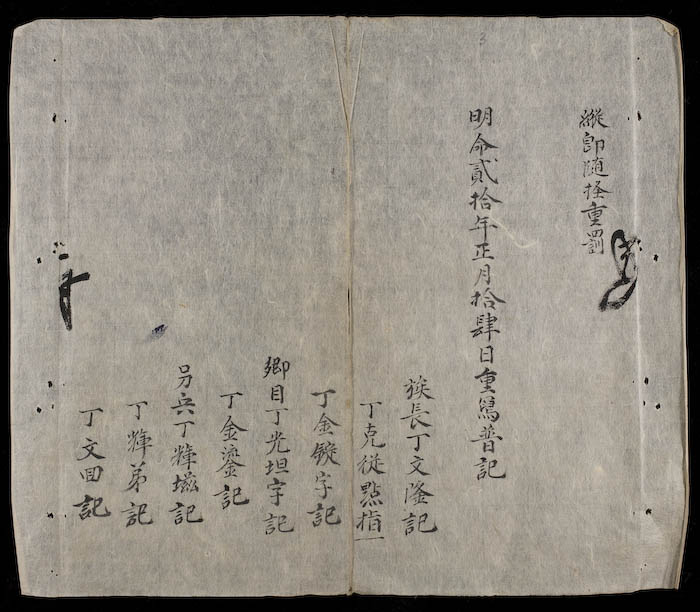 縱即随挃重罰
明命貳拾年正月拾肆日重寫普記
族長丁文隆記
丁克從㸃指
丁金錠字記
鄉目丁光坦字記
丁金鎏記
另兵丁輝嵫記
丁輝弟記
丁文田記